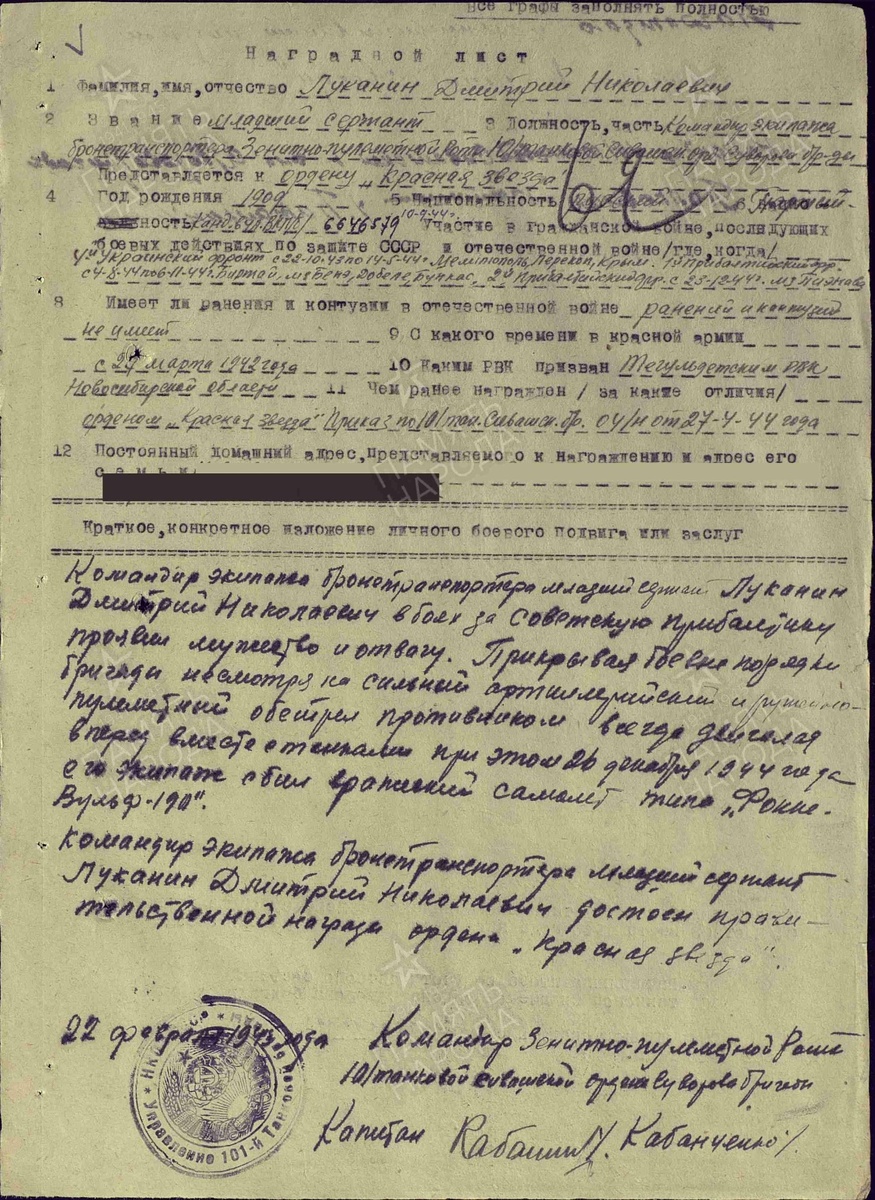 Все графы заполнять полностью
Наградной лист
1 Фамилия, имя, отчество Луканин Дмитрий Николаевич
2 Звание младший сержант 3 Должность, часть Командир экипажа
бронетранспортера Зенитно-пулеметной Роты 101 танковой Сивашской орд. Суворова бр-ды
Представляется к ордену „Красная звезда"
4 Год рождения 1909 5 Национальность 6 Партий-
ность Канд. ВКП/б/ 6646579 Участие в гражданской войне, последующих
боевых действиях по защите СССР и отечественной войне /где, когда/
4й Украинский фронт с 22-10-43 по 14-5-44г. Мелитополь, Перекоп, Крым. 1й Прибалтийский фр.
с 4-8-44 по 6-11-44г. Биржай, м. Бене, Добеле, 2й Прибалтийский фр. с 23-12-44г.
8 Имеет ли ранения и контузии в отечественной войне ранений и контузий
не имеет 9 С какого времени в красной армии
с марта 1942 года 10 Каким РВК призван Тегульдетским РВК
Новосибирской области 11 Чем ранее награжден /за какие отличия/
орденом „Красная звезда" Приказ по 101 тан. Сивашск. бр. 04/н от 27-4-44 года
12 Постоянный домашний адрес, представляемого к награждению и адрес его
семьи
Краткое, конкретное изложение личного боевого подвига или заслуг
Командир экипажа бронетранспортера младший сержант Луканин
Дмитрий Николаевич в боях за Советскую Прибалтику
проявил мужество и отвагу. Прикрывая боевые порядки
бригады несмотря на сильной артиллерийский и ружейно-
пулеметный обстрел противником всегда двигался
вперед вместе с танками при этом 26 декабря 1944 года
его экипаж сбил вражеский самолет типа „Фокке-
Вульф-190".
Командир экипажа бронетранспортера младший сержант
Луканин Дмитрий Николаевич достоен прави-
тельственной награды ордена „Красная звезда".
22 февраля 1945 года
Командир Зенитно-пулеметной Роты
101 танковой сивашской ордена Суворова бригады
Капитан /Кабанченко/
НКО Управление 101-й Танковой
ПАМЯТЬ НАРОДА